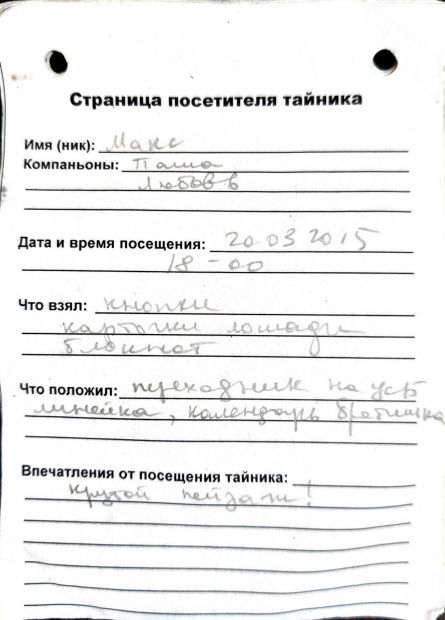 Страница посетителя тайника
Имя (ник): Макс
Компаньоны: Паша
Любовь
Дата и время посещения: 20 03 2015
18-00
Что взял: кнопки
карточки лошади
блокнот
Что положил: переходник на усб
линейка, календарь братишка
Впечатления от посещения тайника:
крутой пейзаж!